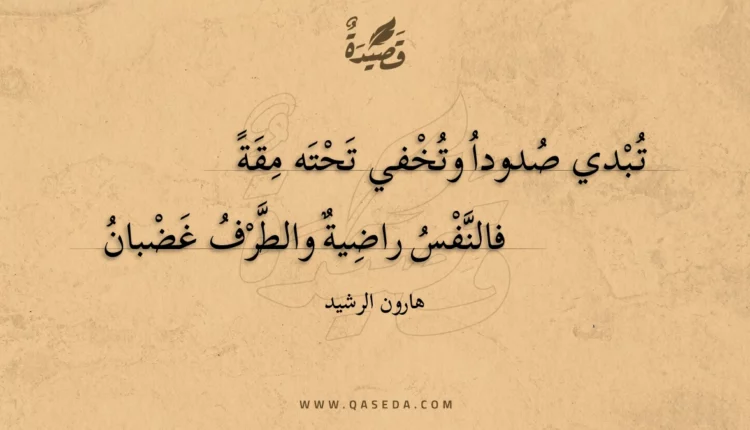 قَصِيْدَةٌ
تُبْدي صُدوداُ وتُخْفي تَحْتَه مِقَةً
فالنَّفْسُ راضِيةٌ والطَّرْفُ غَضْبانُ
هارون الرشيد
WWW.QASEDA.COM